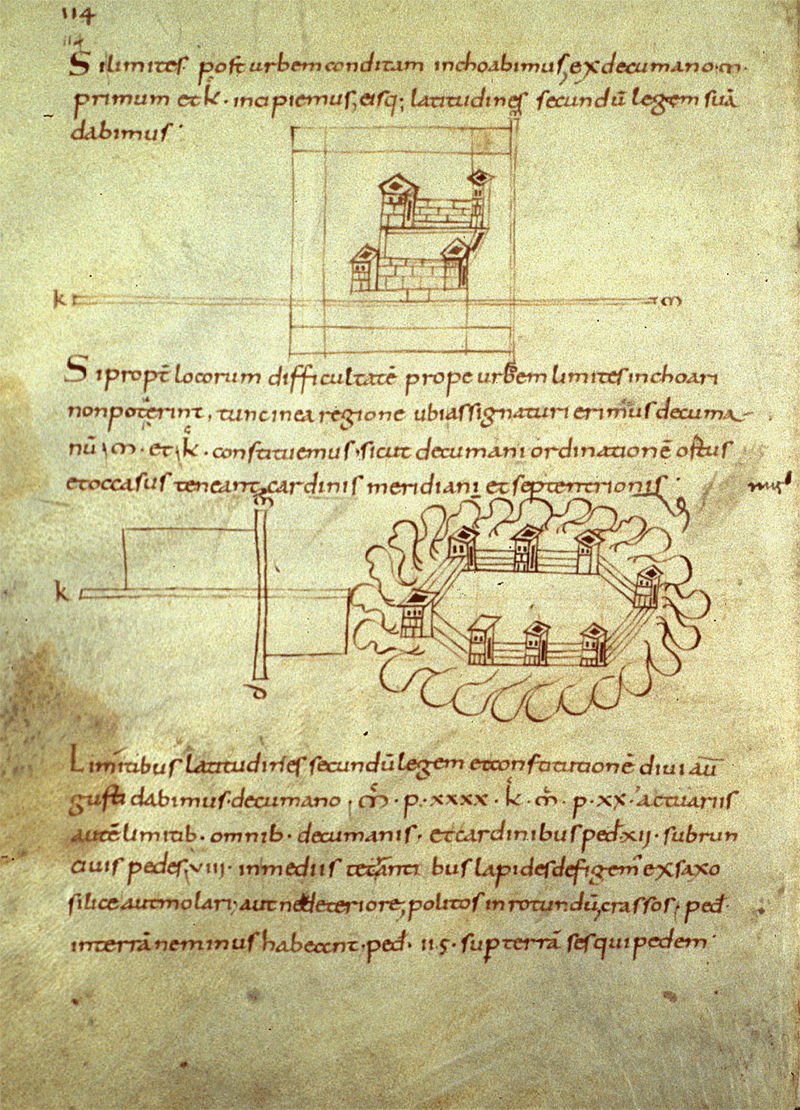 114
114
Si limites post urbem conditam inchoabimus, ex decumano · m ·
primum et k · incipiemus, eisq; latitudines secundū legem suā
dabimus ·
m
k m
Si propt̄ locorum difficultatē prope urbem limites inchoari
non poterint, tunc in ea regione ubi assignaturi erimus decuma
nū · m · et · k · constituemus · sicut decumani ordinationē ortus
et occasus teneant, cardinis meridiani et septentrionis ·
m
k
Limitibus latitudines secundū legem et constitutionē diui au
gusti dabimus · decumano · m̄ · p · xxxx · k · m̄ · p · xx · actuariis
autē limitib · omnib · decumanis · et cardinibus ped · xij · subrun
ciuis pedes · viij · in mediis tetranti bus lapides defigem exsaxo
silice aut molari; aut ne deteriore, politos in rotundū, crassos · ped ·
in terrā ne minus habeant · ped · supterrā sesquipedem ·